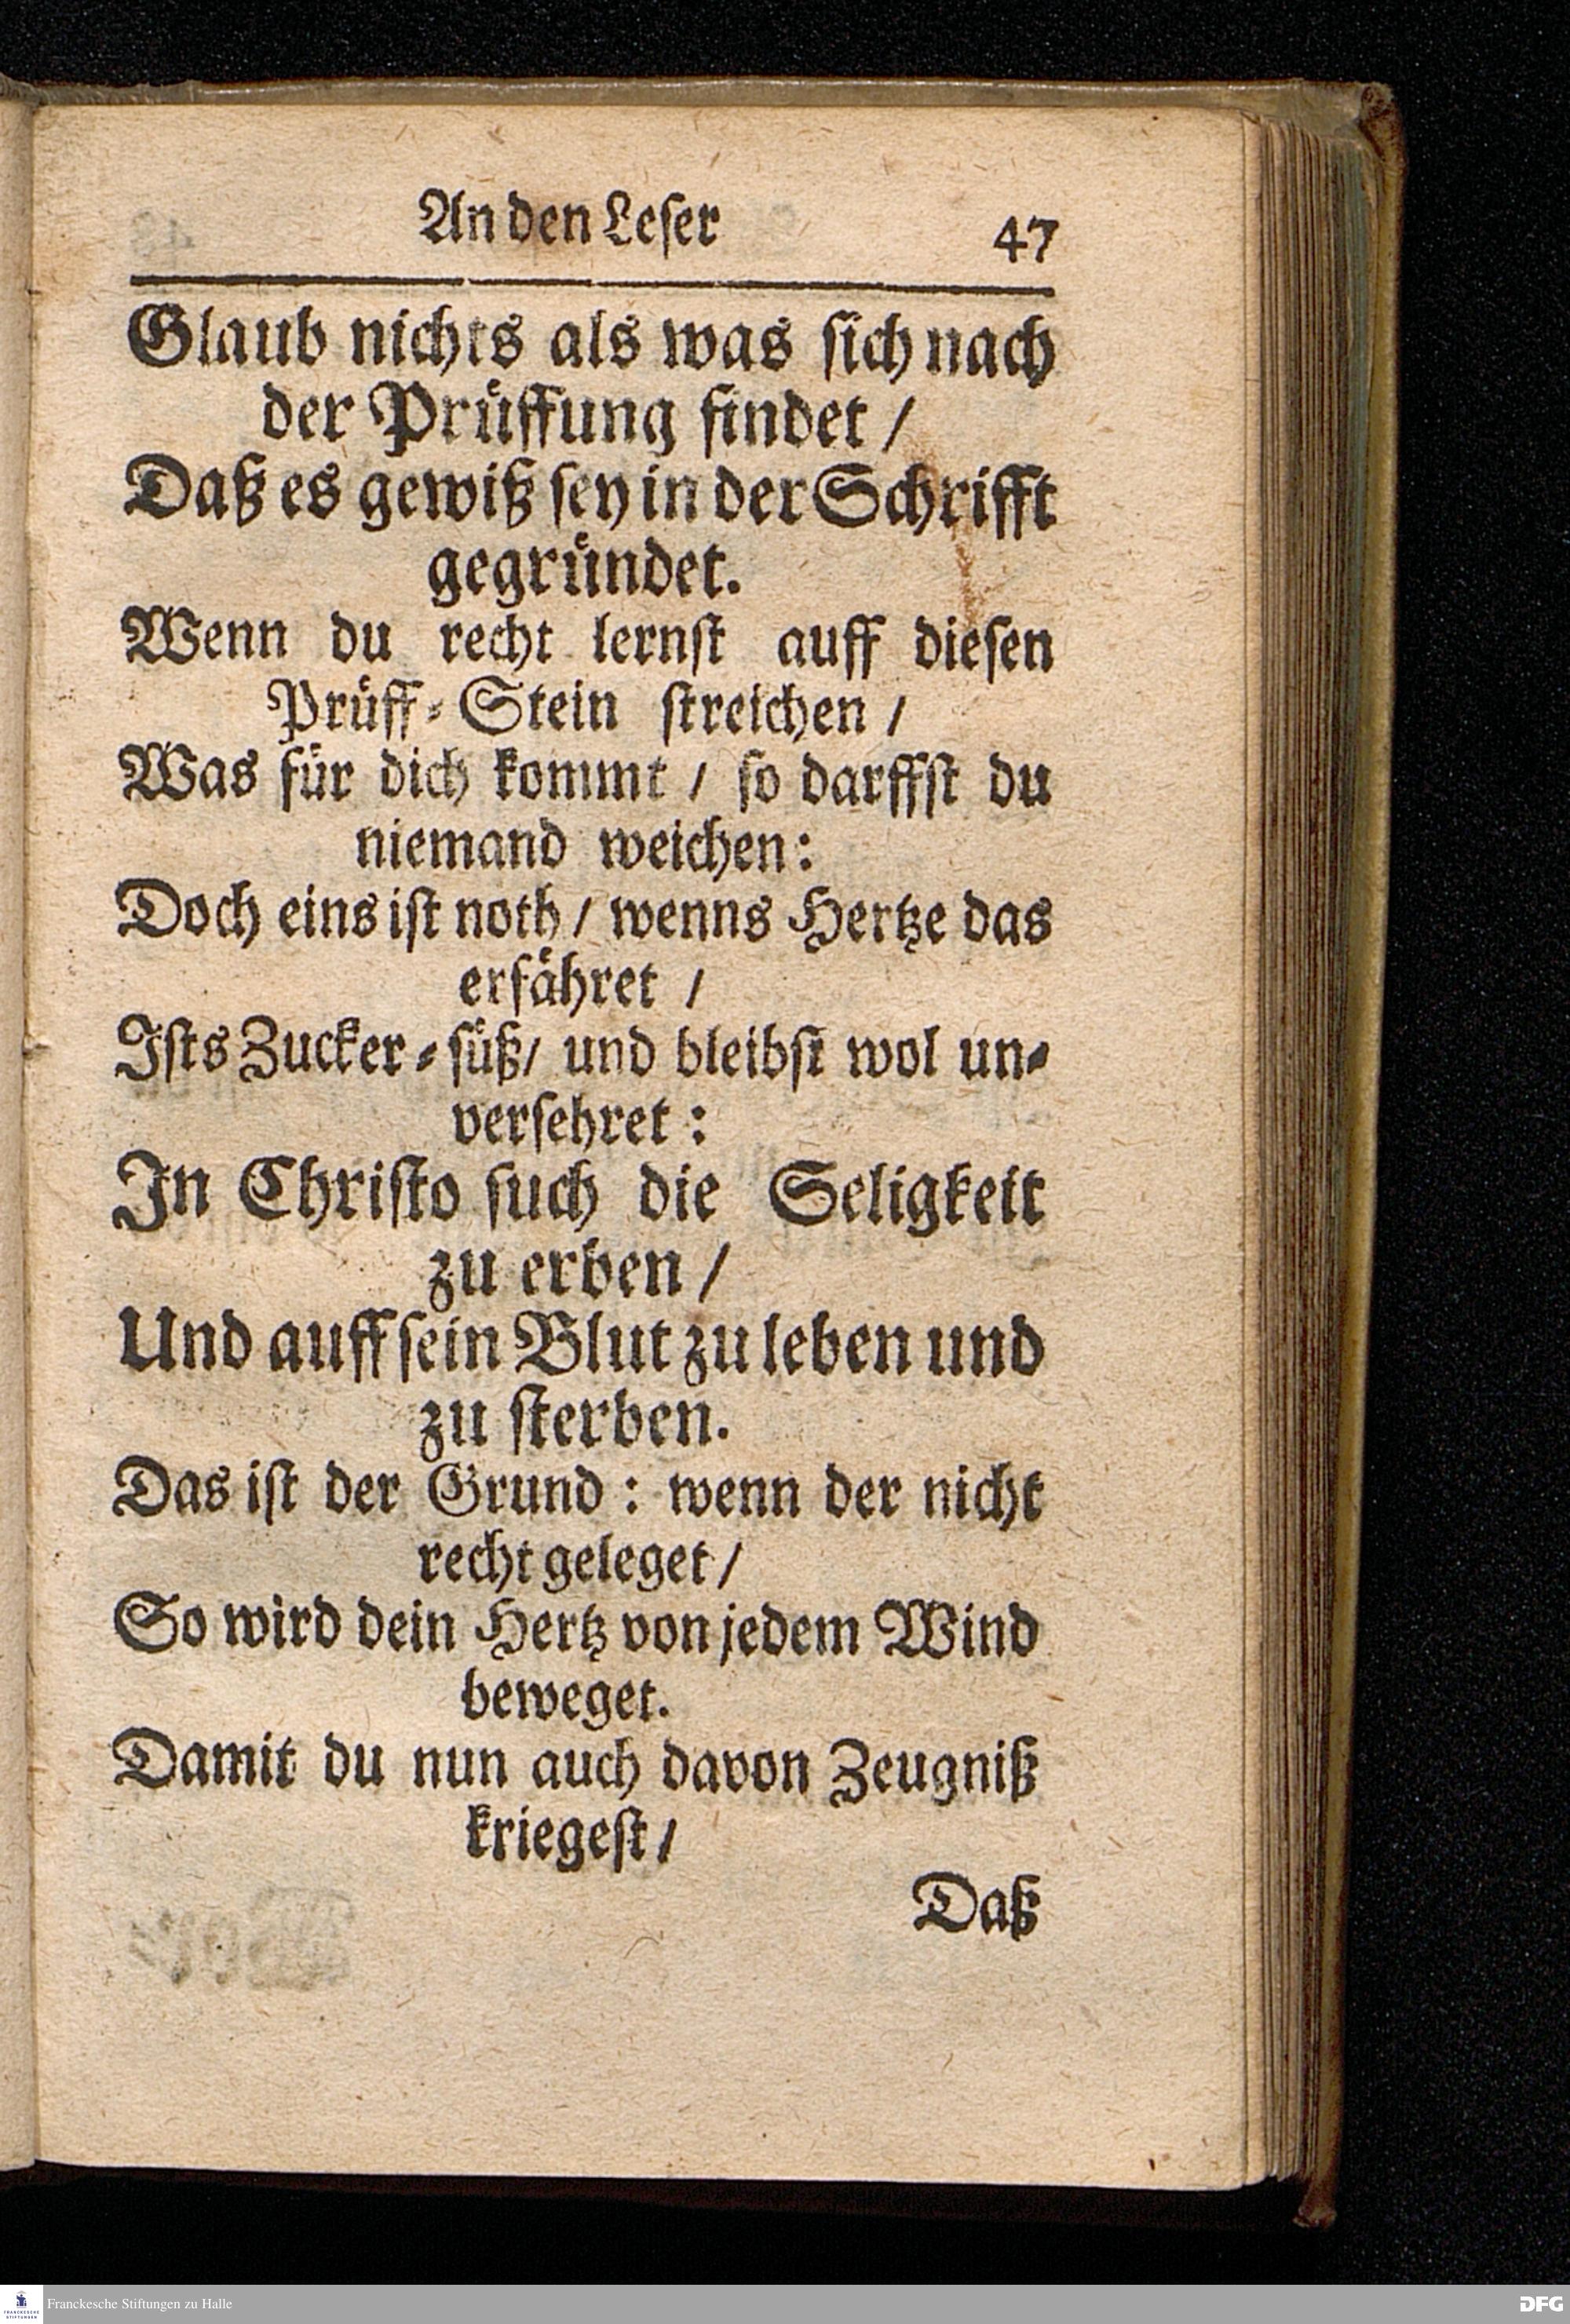 An den Leſer 47
Glaub nichts als was ſich nach
der Pruͤffung findet /
Daß es gewiß ſey in der Schrifft
gegruͤndet.
Wenn du recht lernſt auff dieſen
Pruͤff-Stein ſtreichen /
Was fuͤr dich kommt / ſo darffſt du
niemand weichen:
Doch eins iſt noth / wenns Hertze das
erfaͤhret /
Iſts Zucker-ſuͤß / und bleibſt wol un-
verſehret :
In Chriſto ſuch die Seligkeit
zu erben /
Und auff ſein Blut zu leben und
zu ſterben.
Das iſt der Grund : wenn der nicht
recht geleget /
So wird dein Hertz von jedem Wind
beweget.
Damit du nun auch davon Zeugniß
kriegeſt /
Daß
FRANCKESCHE STIFTUNGEN
Franckesche Stiftungen zu Halle
DFG